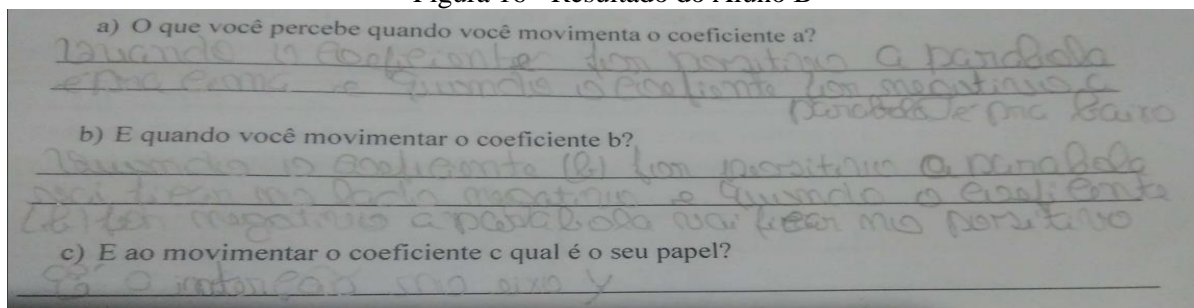 Figura 16 - Resultado do Aluno B
a) O que você percebe quando você movimenta o coeficiente a?
Quando o coeficiente for positivo a parabola
é pra cima e quando o coefiente for negativo a
parabola e pra baixo
b) E quando você movimentar o coeficiente b?
Quando o coeficiente (b) for positivo a parabola
vai ficar no lado negativo e quando o coeficiente
(b) for negativo a parabola vai ficar no positivo
c) E ao movimentar o coeficiente c qual é o seu papel?
É o no eixo y